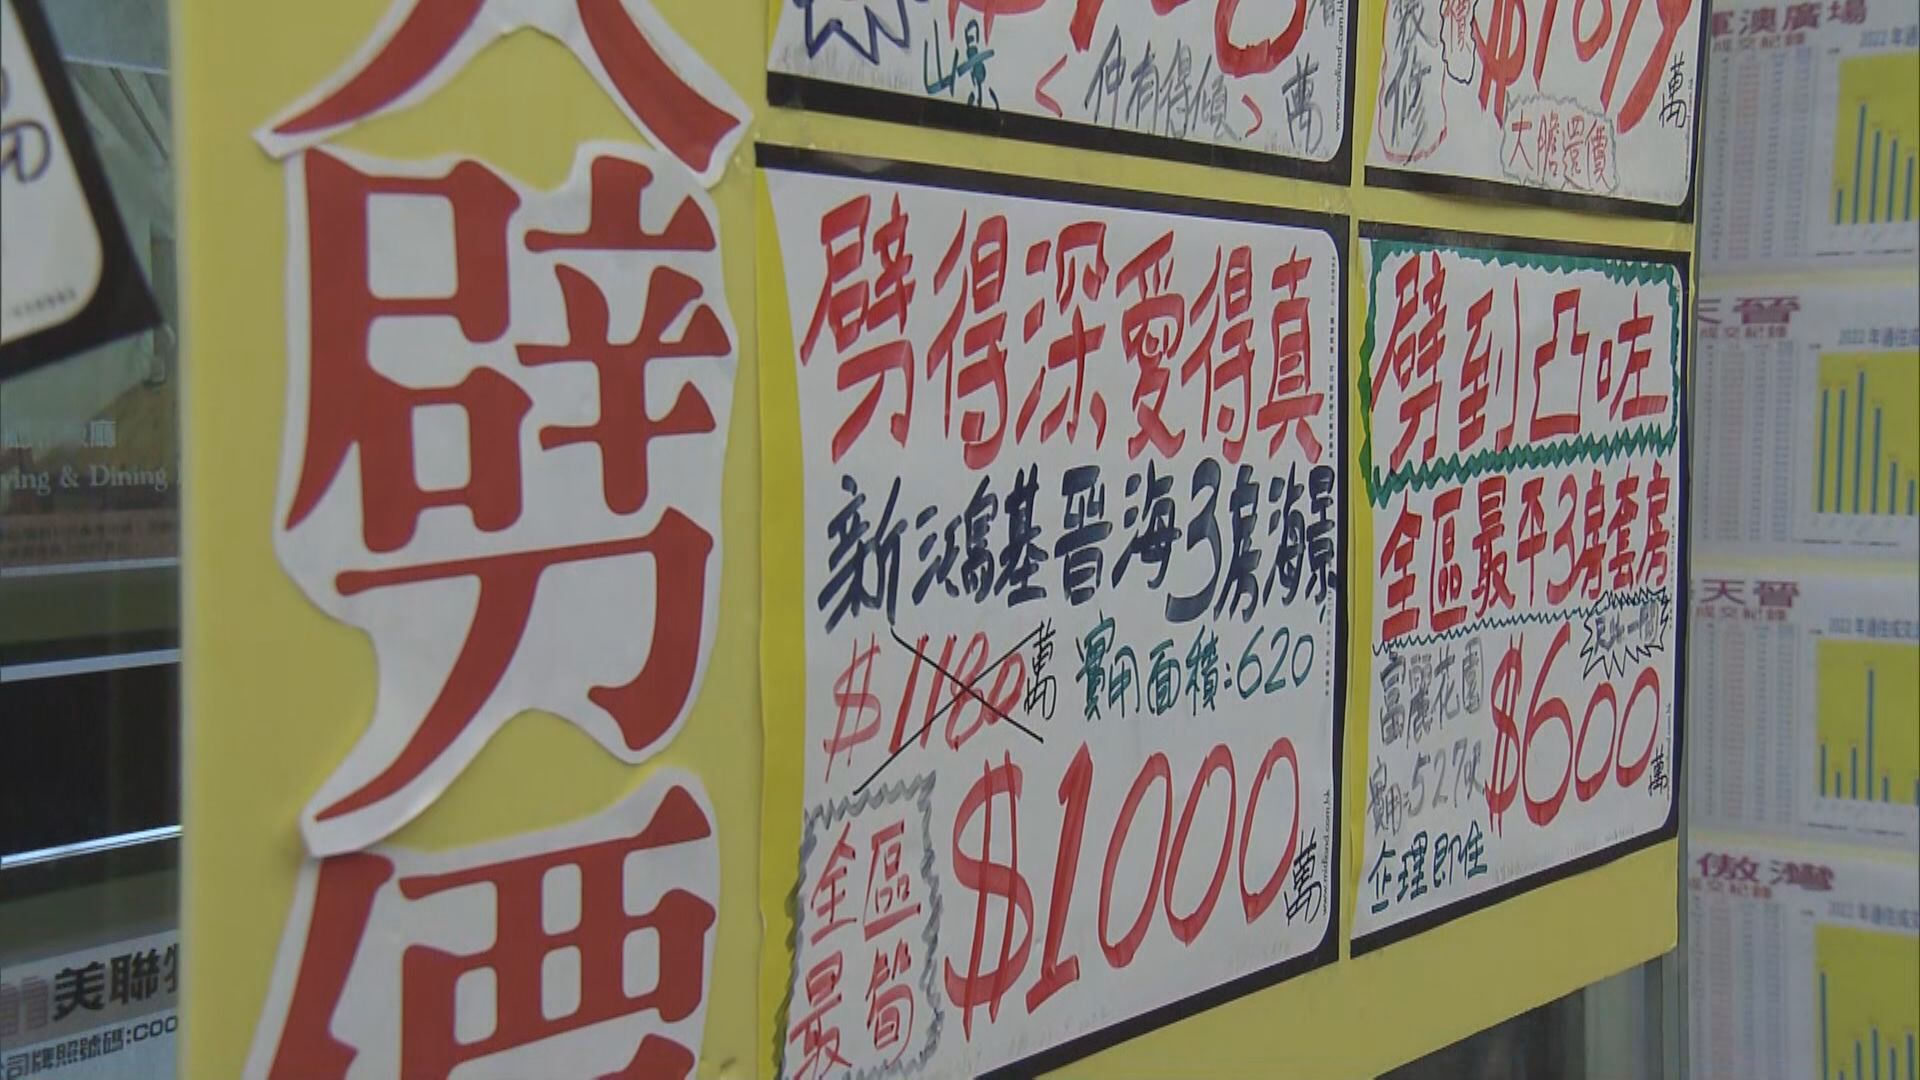 大
劈
價
山景
<仲有得傾>
萬
www.midland.com.hk
裝修
價
萬
大膽還價
劈得深愛得真
新鴻基晉海3房海景
$1180萬
實用面積:620
全區
最筍
$1000萬
www.midland.com.hk
劈到凸咗
全區最平3房套房
富麗花園
實用:527呎
$600萬
企理即住
軍澳廣場
成交紀錄
天晉
成交紀錄
天晉
成交紀錄
傲灣
成交紀錄
ving & Dining
美聯物
公司牌照號碼:C00